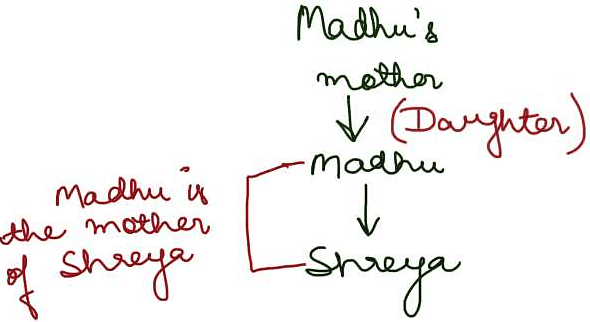 Madhu's
mother
(Daughter)
Madhu
Madhu is
the mother
of Shreya
Shreya